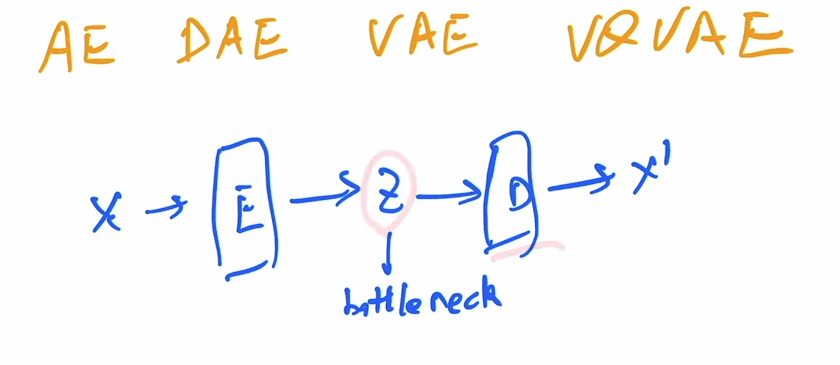 AE DAE VAE VQVAE
X → E → Z → D → X'
bottleneck